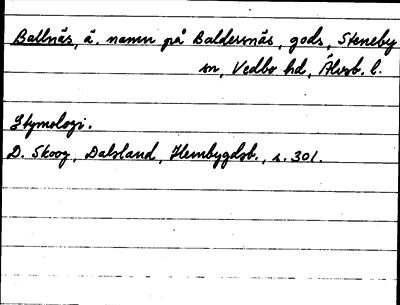 Ballnäs, ä. namn på Baldersnäs, gods, Steneby
sn, Vedbo hd, Älvsb. l.
Etymologi.
D. Skoog, Dalsland, Hembygdsb., s. 301.